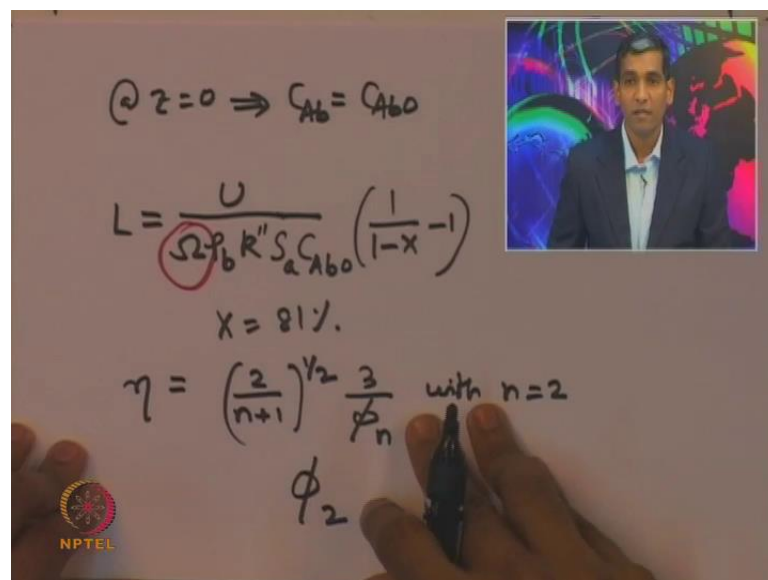 @ z = 0 ⇒ C_Ab = C_Ab0
L = U / (Ω ρ_b k'' S_a C_Ab0) (1/(1-x) - 1)
x = 81%.
η = (2/(n+1))^1/2 3/ϕ_n with n=2
ϕ_2
NPTEL